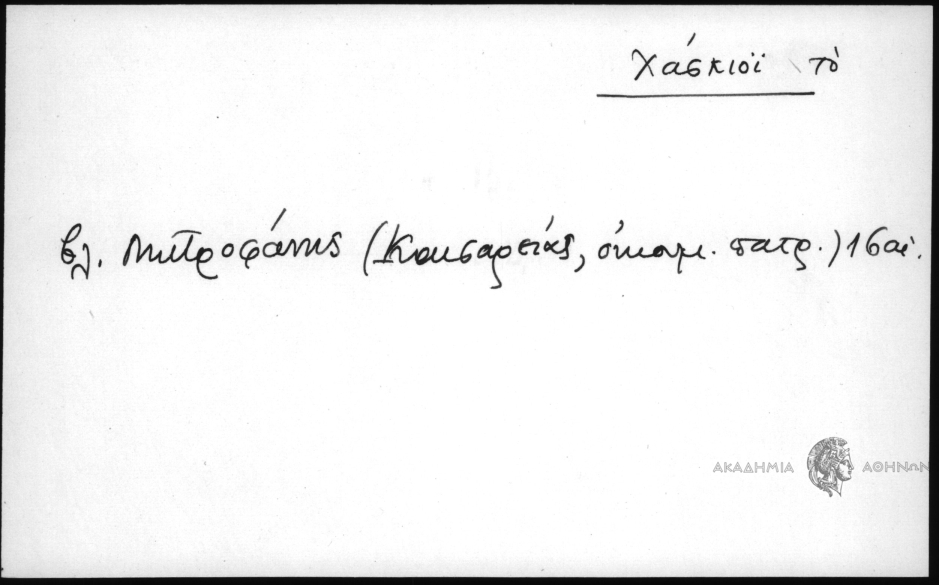 Χάσκιοϊ τὸ
βλ. Μητροφάνης (Καισαρείας, οἰκουμ. πατρ.) 16 αἰ.
ΑΚΑΔΗΜΙΑ ΑΘΗΝΩΝ